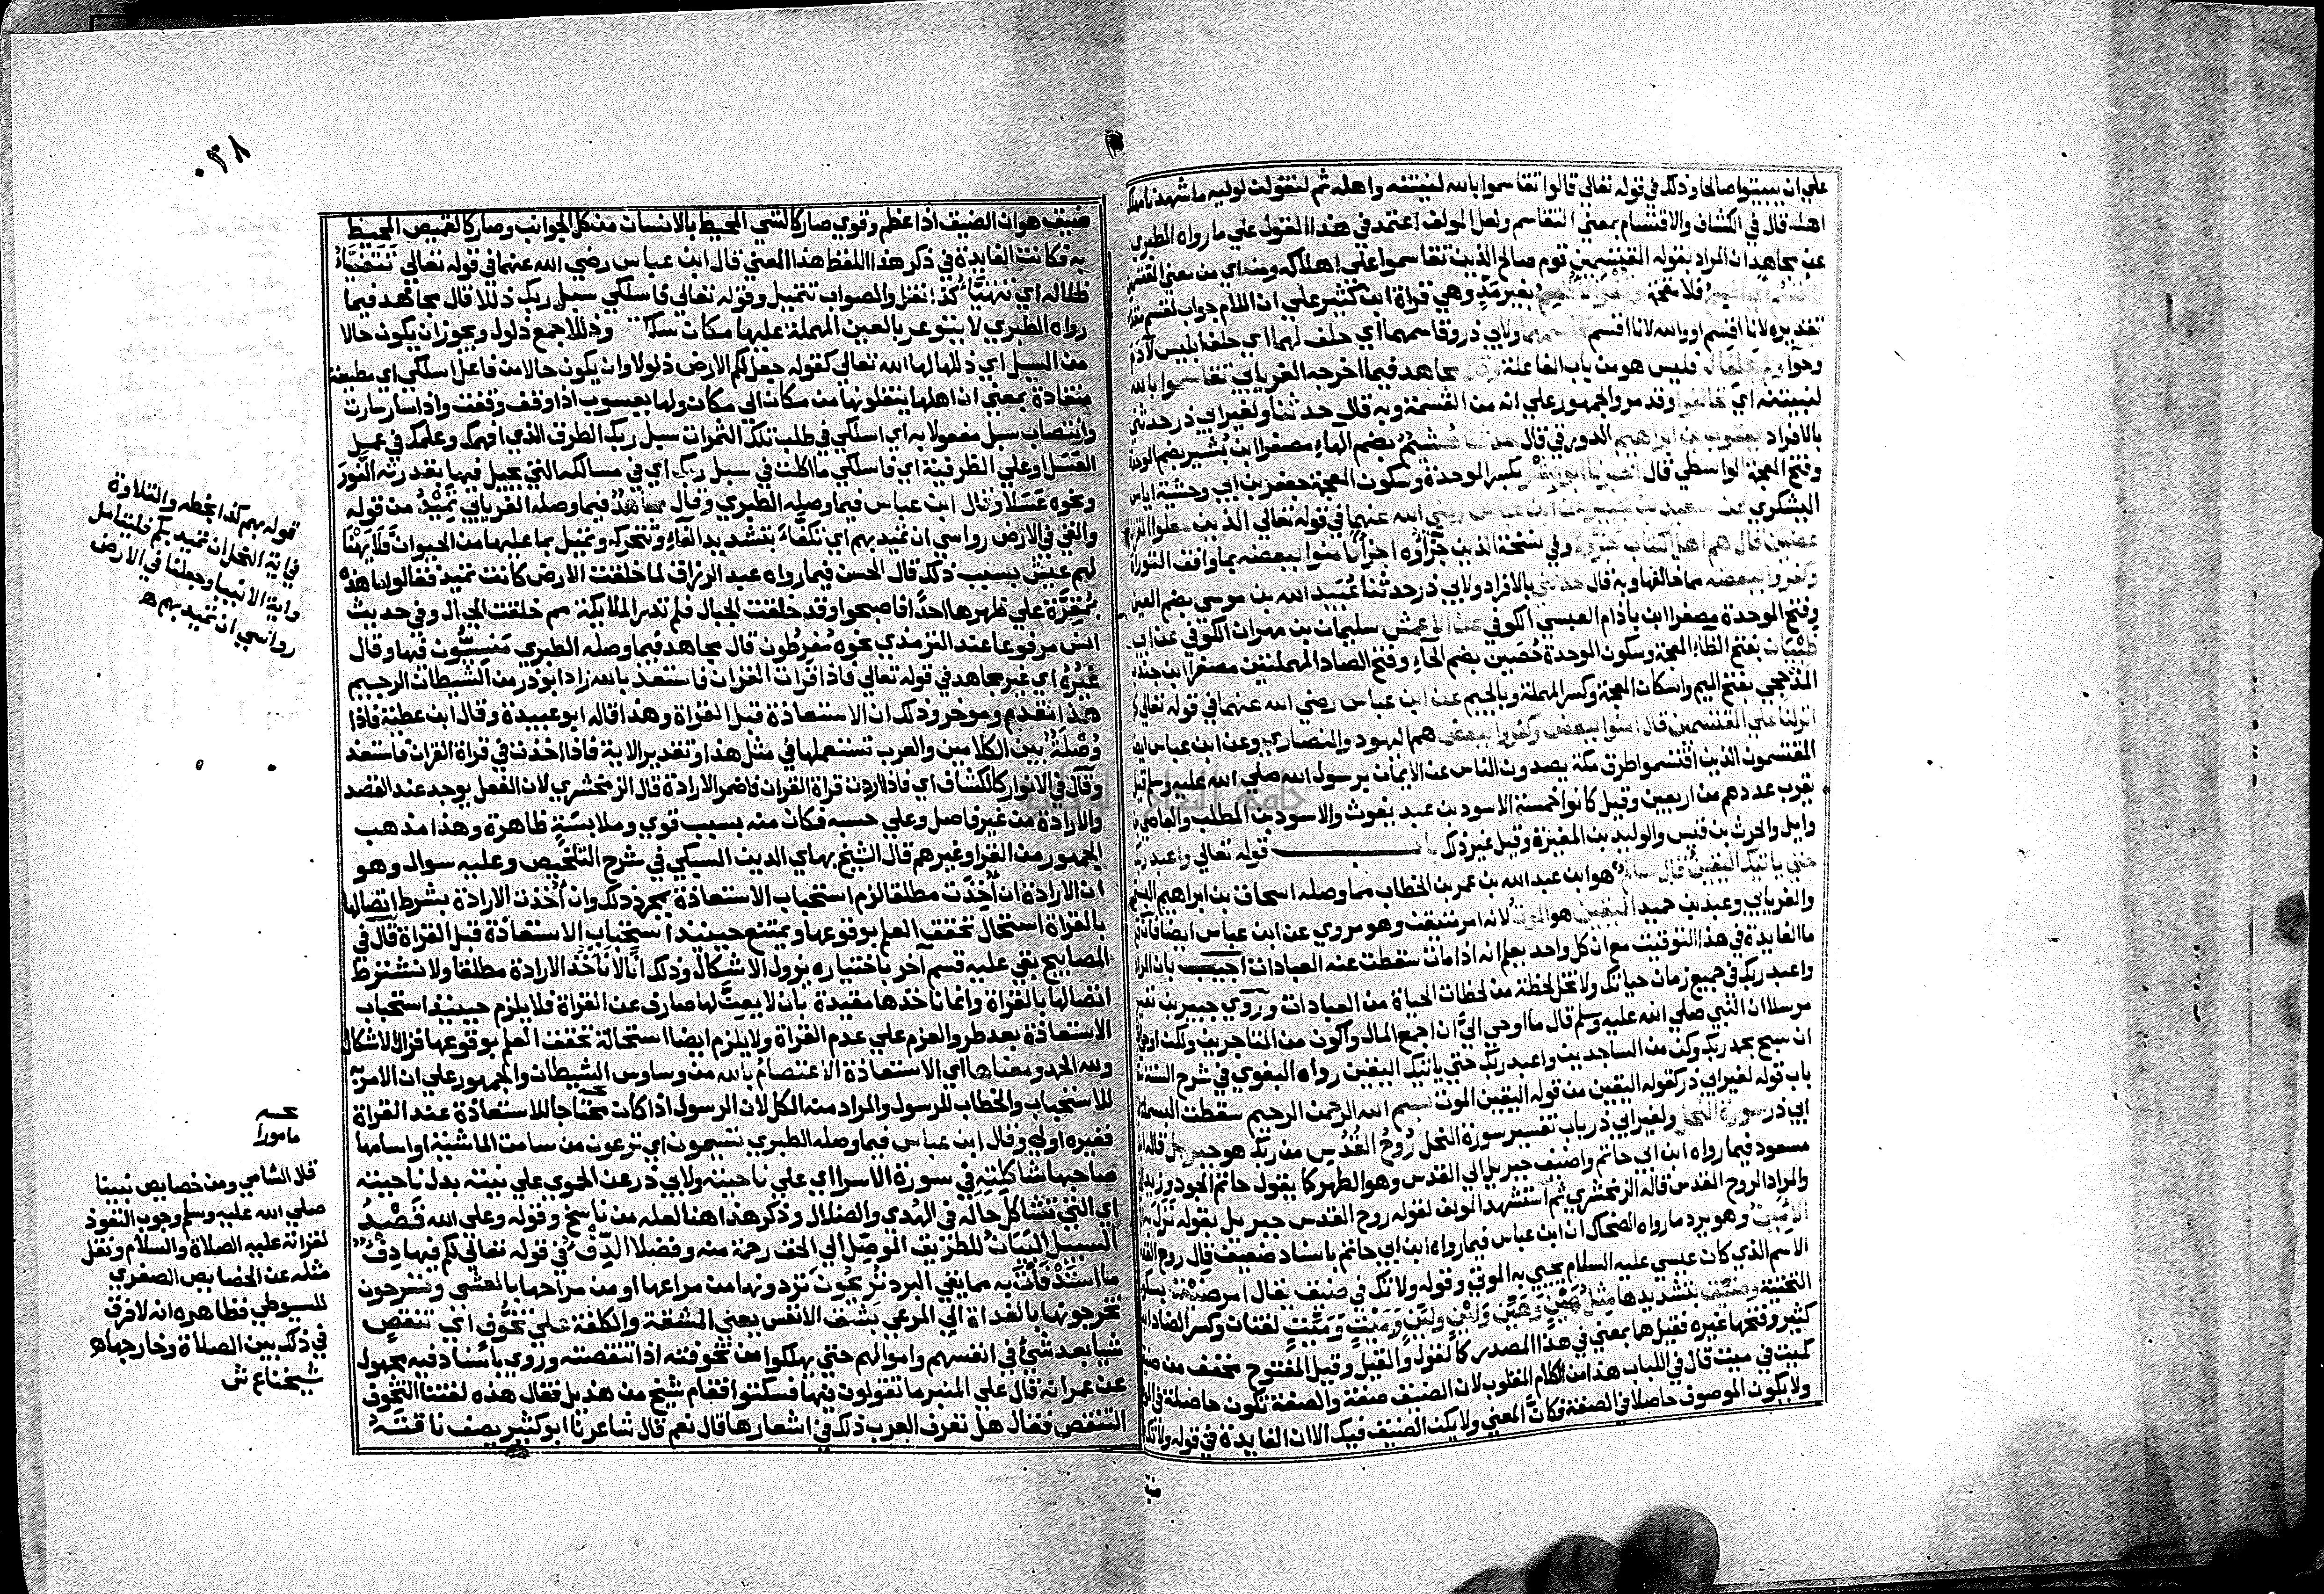 علي ان يبيتوا صالحا وذلك في قوله تعالي قالوا تقاسموا بالله لنبيتنه واهله ثم لنقولن لوليه ما شهدنا مهلك
اهله قال في الكشاف والاقتسام بمعني التقاسم ولعل المولف اعتمد في هذا القول علي ما رواه الطبري
عن مجاهد ان المراد بقوله المقتسمين قوم صالح الذين تقاسموا علي اهلاكه ومنه اي من معني المقتسمين
فلام بغير مد وهي قراة ابن كثير علي ان اللام جواب لقسم مقدر
تقديره لانا اقسم او والله لانا اقسم ولابي ذر وقاسمهما اي حلف لهما اي حلف ابليس لادم
وحوا ولم يحلفا له فليس هو من باب المفاعلة وقال مجاهد فيما اخرجه الفريابي تقاسموا بالله
لنبيتنه اي تحالفوا وقد مر والجمهور علي انه من القسمة وبه قال حدثنا ولغير ابي ذر حدثني
بالافراد يعقوب بن ابراهيم الدورقي قال حدثنا هشيم بضم الهاء مصغرا ابن بشير بضم الموحدة
وفتح المعجمة الواسطي قال اخبرنا ابو بشر بكسر الموحدة وسكون المعجمة جعفر بن ابي وحشية اياس
اليشكري عن سعيد بن جبير عن ابن عباس رضي الله عنهما في قوله تعالي الذين جعلوا القران
عضين قال هم اهل الكتاب جزؤه وفي نسخة الذين جزاوه اجزا امنوا ببعضه مما وافق التوراة
وكفروا ببعضه مما خالفها وبه قال حدثني بالافراد ولابي ذر حدثنا عبيد الله بن موسي بضم العين
وفتح الموحدة مصغرا ابن باذام العبسي الكوفي عن الاعمش سليمان بن مهران الكوفي عن ابي
ظبيان بفتح الظاء المعجمة وسكون الموحدة حصين بضم الحاء وفتح الصاد المهملتين مصغرا ابن جندب
المذحجي بفتح الميم واسكان المعجمة وكسر المهملة وبالجيم عن ابن عباس رضي الله عنهما في قوله تعالي كما
انزلنا علي المقتسمين قال امنوا ببعض وكفروا ببعض هم اليهود والنصاري وعن ابن عباس ايضا
المقتسمون الذين اقتسموا طرق مكة يصدون الناس عن الايمان برسول الله صلي الله عليه وسلم قيل
يقرب عددهم من اربعين وقيل كانوا خمسة الاسود بن عبد يغوث والاسود بن المطلب والعاصي بن
وايل والحرث بن قيس والوليد بن المغيرة وقيل غير ذلك باب قوله تعالي واعبد ربك
حتي ياتيك اليقين قال سالم هو ابن عبد الله بن عمر بن الخطاب مما وصله اسحاق بن ابراهيم البستي
والفريابي وعبد بن حميد اليقين هو الموت لانه امر متيقن وهو مروي عن ابن عباس ايضا فان قيل
ما الفايدة في هذا التوقيت مع ان كل واحد يعلم انه اذا مات سقطت عنه العبادات اجيب بان المراد
واعبد ربك في جميع زمان حياتك ولا تخل لحظة من لحظات الحياة من العبادات وروي جبير بن نفير
مرسلا ان النبي صلي الله عليه وسلم قال ما اوحي الي ان اجمع المال واكون من التاجرين ولكن اوحي
ان سبح بحمد ربك وكن من الساجدين واعبد ربك حتي ياتيك اليقين رواه البغوي في شرح السنة
باب قوله لغير ابي ذر كقوله اليقين من قوله اليقين الموت بسم الله الرحمن الرحيم سقطت البسملة
ابي ذر سورة النحل ولغير ابي ذر باب تفسير سورة النحل روح القدس من ربك هو جبريل قاله ابن
مسعود فيما رواه ابن ابي حاتم واضيف جبريل الي القدس وهو الطهر كما يقول حاتم الجود وزيد
والمراد الروح المقدس قاله الزمخشري ثم استشهد المولف لقوله روح القدس جبريل بقوله نزل به
الامين وهو يرد ما رواه الضحاك ان ابن عباس فيما رواه ابن ابي حاتم باسناد ضعيف قال روح القدس
الاسم الذي كان عيسي عليه السلام يحيي به الموتي وقوله ولا تك في ضيق يقال امر ضيق بسكون
التحتية وضيق بتشديدها مثل هين وهين ولين ولين وميت وميت لغتان وكسر الضاد ابن
كثير وفتحها غيره فقيل هما بمعني في هذا المصدر كالقول والقيل وقيل المفتوح مخفف من ضيق
كميت في ميت قال في اللباب هذا من الكلام المقلوب لان الضيق صفة والصفة تكون حاصلة في الموصوف
ولا يكون الموصوف حاصلا في الصفة فكان المعني ولا يكن الضيق فيك الا ان الفايدة في قوله ولا تك
٠٣٨
ضيق هو ان الضيق اذا عظم وقوي صار كالشي المحيط بالانسان من كل الجوانب وصار كالقميص المحيط
به فكانت الفايدة في ذكر هذا اللفظ هذا المعني قال ابن عباس رضي الله عنهما في قوله تعالي تتفيأ
ظلاله اي تتهيأ كذا نقل والصواب تتميل وقوله تعالي فاسلكي سبل ربك ذللا قال مجاهد فيما
رواه الطبري لا يتوعر بالعين المهملة عليها مكان سلكته وذللا جمع ذلول ويجوز ان يكون حالا
من السبل اي ذللها لها الله تعالي كقوله جعل لكم الارض ذلولا وان يكون حالا من فاعل اسلكي اي مطيعة
منقادة بمعني ان اهلها ينقلونها من مكان الي مكان ولها يعسوب اذا وقف وقفت واذا سار سارت
وانتصاب سبل مفعولا به اي اسلكي في طلب تلك الثمرات سبل ربك الطرق الذي افهمك وعلمك في عمل
العسل وعلي الظرفية اي فاسلكي ما اكلت في سبل ربك اي في مسالكه التي يحيل فيها بقدرته النور
ونحوه عسلا وقال ابن عباس فيما وصله الطبري وقال مجاهد فيما وصله الفريابي تميد من قوله
والقي في الارض رواسي ان تميد بهم اي تكفأ بتشديد الفاء وتتحرك وتميل بما عليها من الحيوان فلا يهنا
لهم عيش بسبب ذلك قال الحسن فيما رواه عبد الرزاق لما خلقت الارض كانت تميد فقالوا ما هذه
بمقرة علي ظهرها احدا فاصبحوا وقد خلقت الجبال فلم تدر الملايكة مم خلقت الجبال وفي حديث
انس مرفوعا عند الترمذي نحوه مفرطون قال مجاهد فيما وصله الطبري منسيون فيها وقال
غيره اي غير مجاهد في قوله تعالي فاذا قرات القران فاستعذ بالله زاد ابو ذر من الشيطان الرجيم
هذا مقدم وموخر وذلك ان الاستعاذة قبل القراة وهذا قاله ابو عبيدة وقال ابن عطية فاذا
وصلة بين الكلامين والعرب تستعملها في مثل هذا وتقدير الاية فاذا اخذت في قراة القران فاستعذ
وقال في الانوار كالكشاف اي فاذا اردت قراة القران فاضمر الارادة قال الزمخشري لان الفعل يوجد عند القصد
والارادة من غير فاصل وعلي حسبه فكان منه بسبب قوي وملابسة ظاهرة وهذا مذهب
الجمهور من القرا وغيرهم قال الشيخ بهاي الدين السبكي في شرح التلخيص وعليه سوال وهو
ان الارادة ان اخذت مطلقا لزم استحباب الاستعاذة بمجرد ذلك وان اخذت الارادة بشرط اتصالها
بالقراة استحال تحقق العلم بوقوعها ويمتنع حينيذ استحباب الاستعاذة قبل القراة قال في
المصابيح بقي عليه قسم آخر باختياره يزول الاشكال وذلك انا لا ناخذ الارادة مطلقا ولا نشترط
اتصالها بالقراة وانما ناخذها مقيدة بان لا يعن لها صارف عن القراة فلا يلزم حينيذ استحباب
الاستعاذة بعد طرو العزم علي عدم القراة ولا يلزم ايضا استحالة تحقق العلم بوقوعها فزال الاشكال
ولله الحمد ومعناها اي الاستعاذة الاعتصام بالله من وساوس الشيطان والجمهور علي ان الامر به
للاستحباب والخطاب للرسول والمراد منه الكل لان الرسول اذا كان محتاجا للاستعاذة عند القراة
فغيره اولي وقال ابن عباس فيما وصله الطبري تسيمون اي ترعون من سامت الماشية او اسامها
صاحبها شاكلته في سورة الاسرا اي علي ناحيته ولابي ذر عن الحموي علي نيته بدل ناحيته
اي التي تشاكل حاله في الهدي والضلال وذكر هذا هنا لعله من ناسخ وقوله وعلي الله قصد
السبيل البيان للطريق الموصل الي الحق رحمة منه وفضلا الدفء في قوله تعالي لكم فيها دفء
ما استدفأت به مما يقي البرد تريحون تردونها من مراعيها او من مراحها بالعشي وتسرحون
تخرجونها بالغداة الي المرعي بشق الانفس يعني المشقة والكلفة علي تخوف اي تنقص
شيا بعد شيء في انفسهم واموالهم حتي يهلكوا من تخوفته اذا تنقصته وروي باسناد فيه مجهول
عن عمر انه قال علي المنبر ما تقولون فيها فسكتوا فقام شيخ من هذيل فقال هذه لغتنا التخوف
التنقص فقال هل تعرف العرب ذلك في اشعارها قال نعم قال شاعرنا ابو كثير يصف ناقته
قوله بهم كذا بخطه والتلاوة
في اية النحل ان تميد بكم فليتامل
واية الانبيا وجعلنا في الارض
رواسي ان تميد بهم ه
مامورا
قال الشامي ومن خصايص نبينا
صلي الله عليه وسلم وجوب التعوذ
لقراته عليه الصلاة والسلام ونقل
مثله عن الخصايص الصغري
للسيوطي فظاهره انه لا فرق
في ذلك بين الصلاة وخارجها ه
شيخنا ع ش